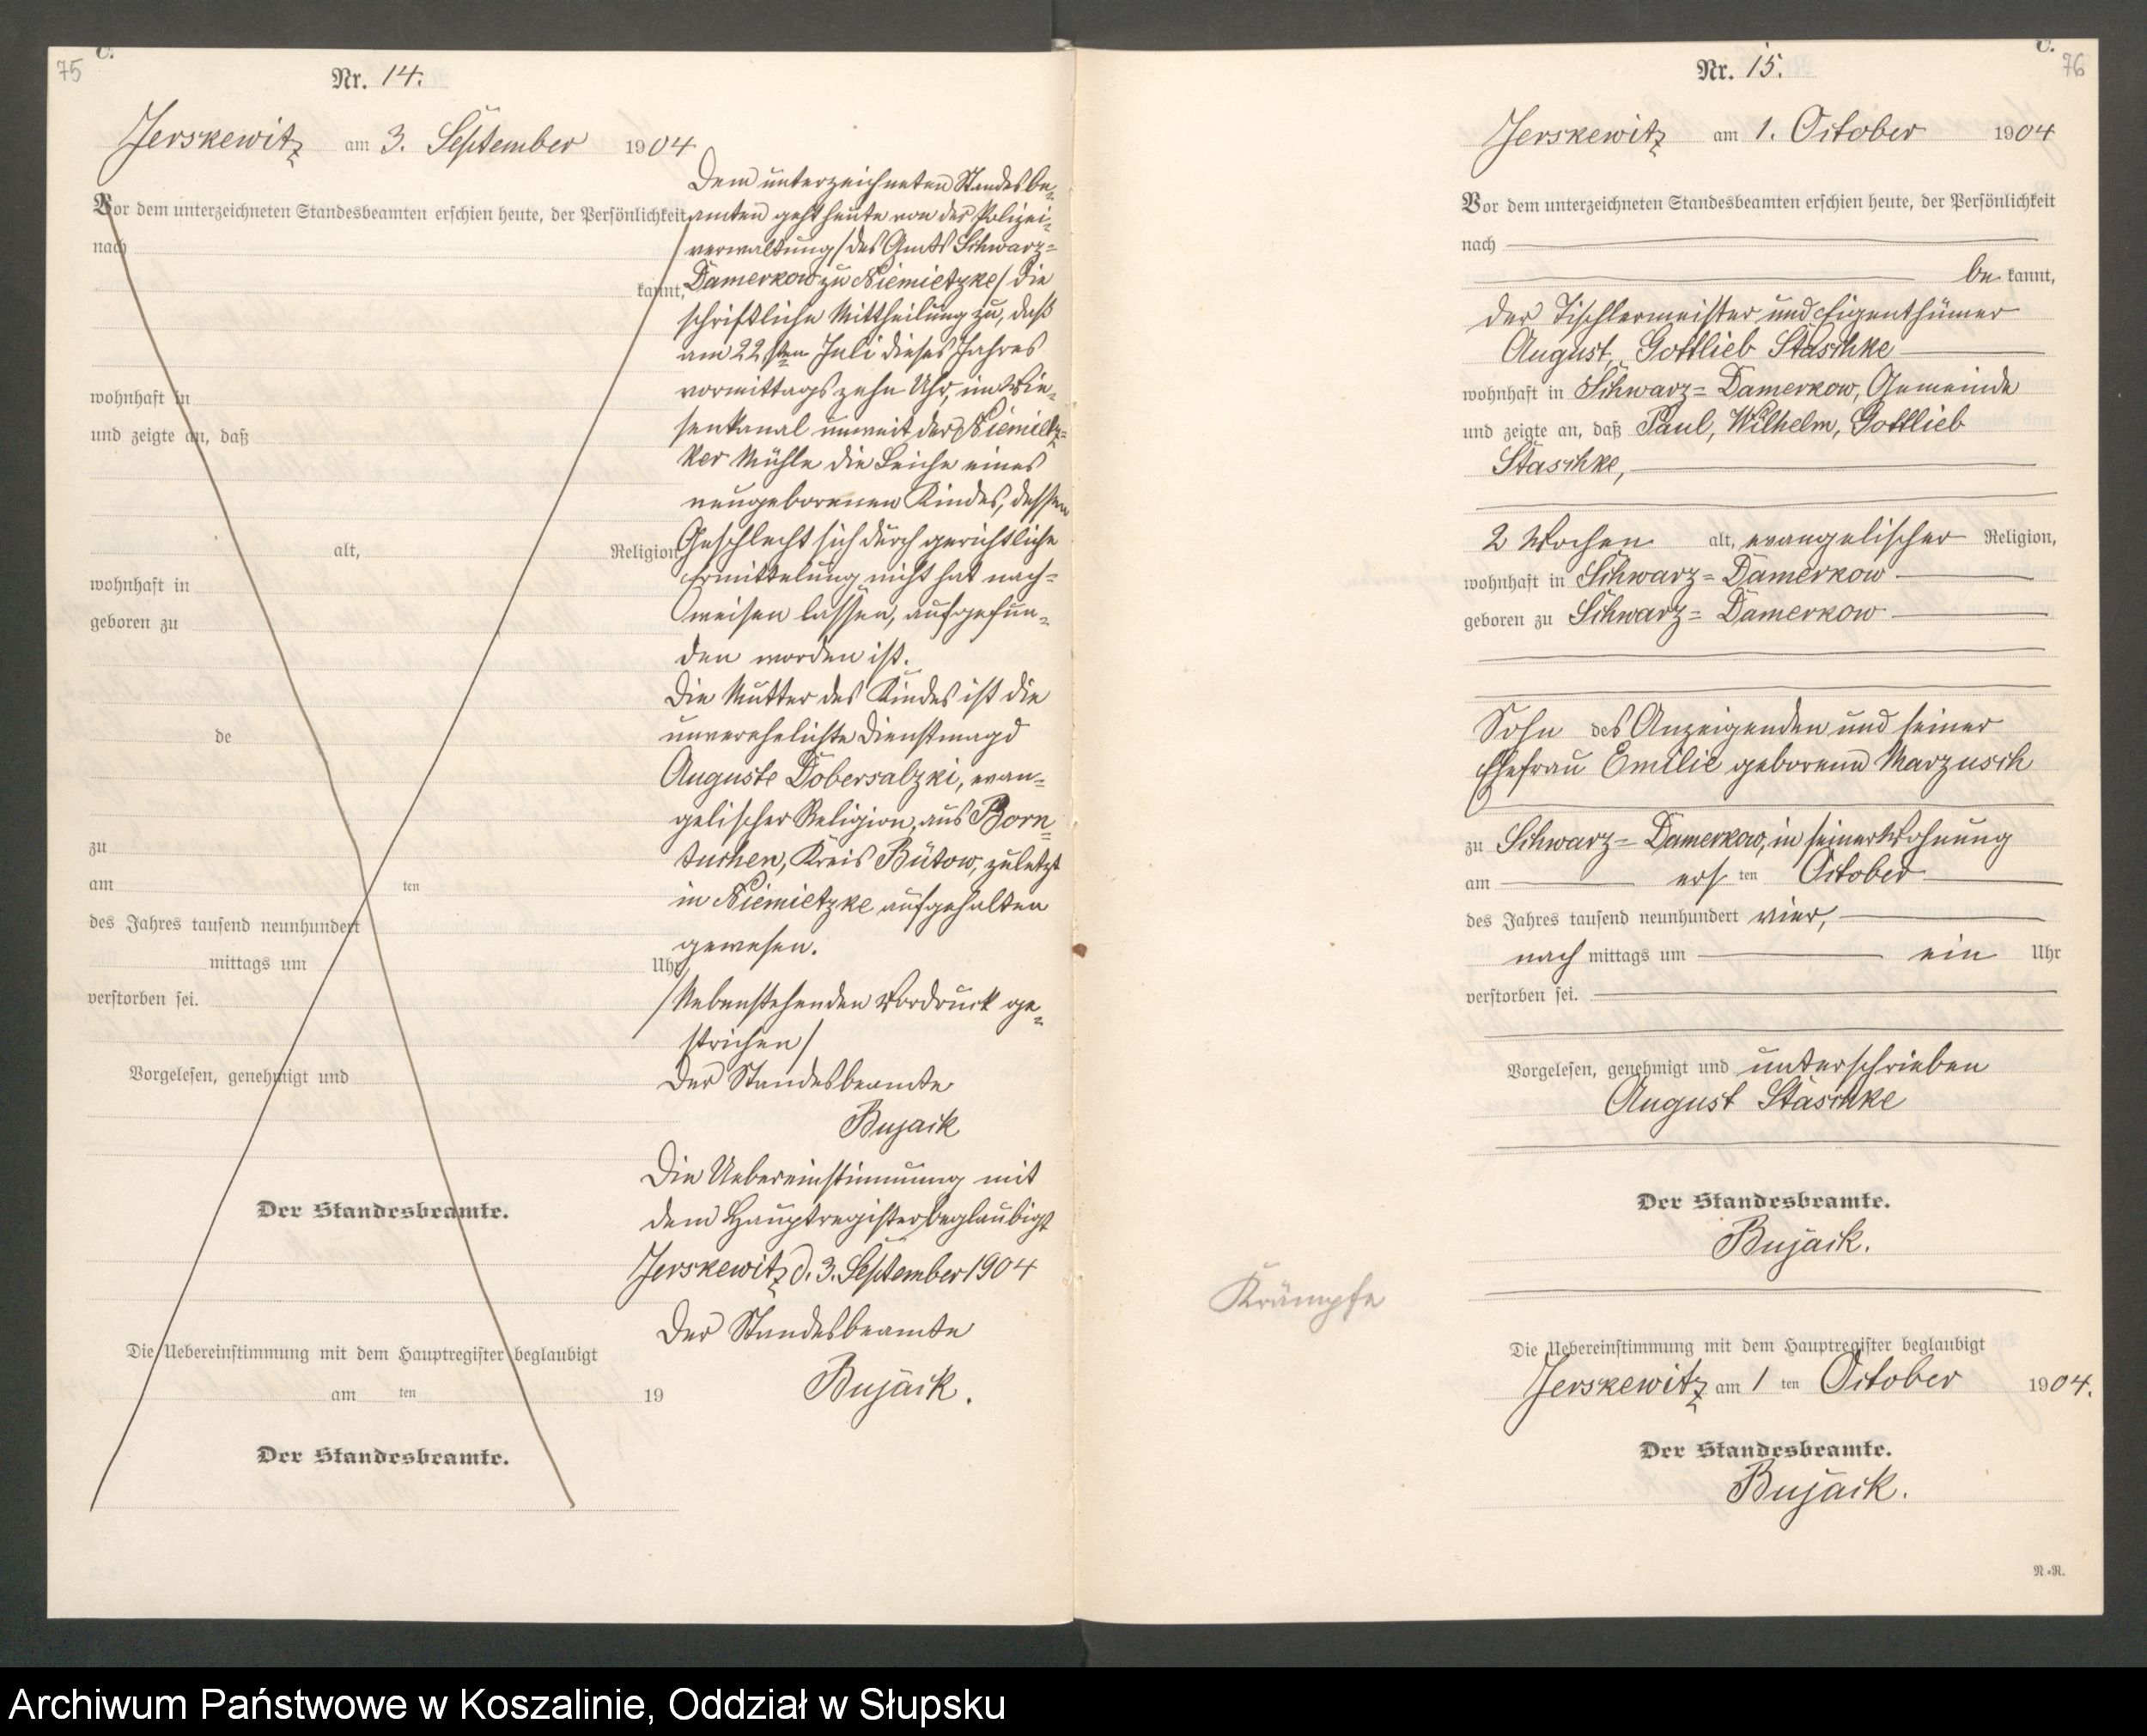 75
C.
Nr. 14.
Jerskewitz am 3. September 1904
Vor dem unterzeichneten Standesbeamten erschien heute, der Persönlichkeit
nach
kannt,
wohnhaft in
und zeigte an, daß
alt, Religion
wohnhaft in
geboren zu
de
zu
am ten
des Jahres tausend neunhundert
mittags um Uhr
verstorben sei.
Vorgelesen, genehmigt und
Der Standesbeamte.
Die Uebereinstimmung mit dem Hauptregister beglaubigt
am ten 19
Der Standesbeamte.
Dem unterzeichneten Standesbe-
amten geht heute von der Polizei-
verwaltung / des Amts Schwarz-
Damerkow zu Niemietzke / die
schriftliche Mittheilung zu, daß
am 22sten Juli dieses Jahres
vormittags zehn Uhr, im Wie-
senkanal unweit der Niemietz-
ker Mühle die Leiche eines
neugeborenen Kindes, dessen
Geschlecht sich durch gerichtliche
Ermittelung nicht hat nach-
weisen lassen, aufgefun-
den worden ist.
Die Mutter des Kindes ist die
unverehelichte Dienstmagd
Auguste Dobersalzki, evan-
gelischer Religion, aus Born-
tuchen, Kreis Bütow, zuletzt
in Niemietzke aufgehalten
gewesen.
/ Nebenstehenden Vordruck ge-
strichen /
Der Standesbeamte
Bujack
Die Uebereinstimmung mit
dem Hauptregister beglaubigt
Jerskewitz d. 3. September 1904
Der Standesbeamte
Bujack.
C.
76
Nr. 15.
Jerskewitz am 1. October 1904
Vor dem unterzeichneten Standesbeamten erschien heute, der Persönlichkeit
nach
be kannt,
der Tischlermeister und Eigenthümer
August, Gottlieb Staschke
wohnhaft in Schwarz-Damerkow, Gemeinde
und zeigte an, daß Paul, Wilhelm, Gottlieb
Staschke,
2 Wochen alt, evangelischer Religion,
wohnhaft in Schwarz-Damerkow
geboren zu Schwarz-Damerkow
Sohn des Anzeigenden und seiner
Ehefrau Emilie geborene Marzusch
zu Schwarz-Damerkow, in seiner Wohnung
am ers ten October
des Jahres tausend neunhundert vier,
nach mittags um ein Uhr
verstorben sei.
Vorgelesen, genehmigt und unterschrieben
August Staschke
Der Standesbeamte.
Bujack.
Krämpfe
Die Uebereinstimmung mit dem Hauptregister beglaubigt
Jerskewitz am 1 ten October 1904.
Der Standesbeamte.
Bujack.
N.-R.
Archiwum Państwowe w Koszalinie, Oddział w Słupsku